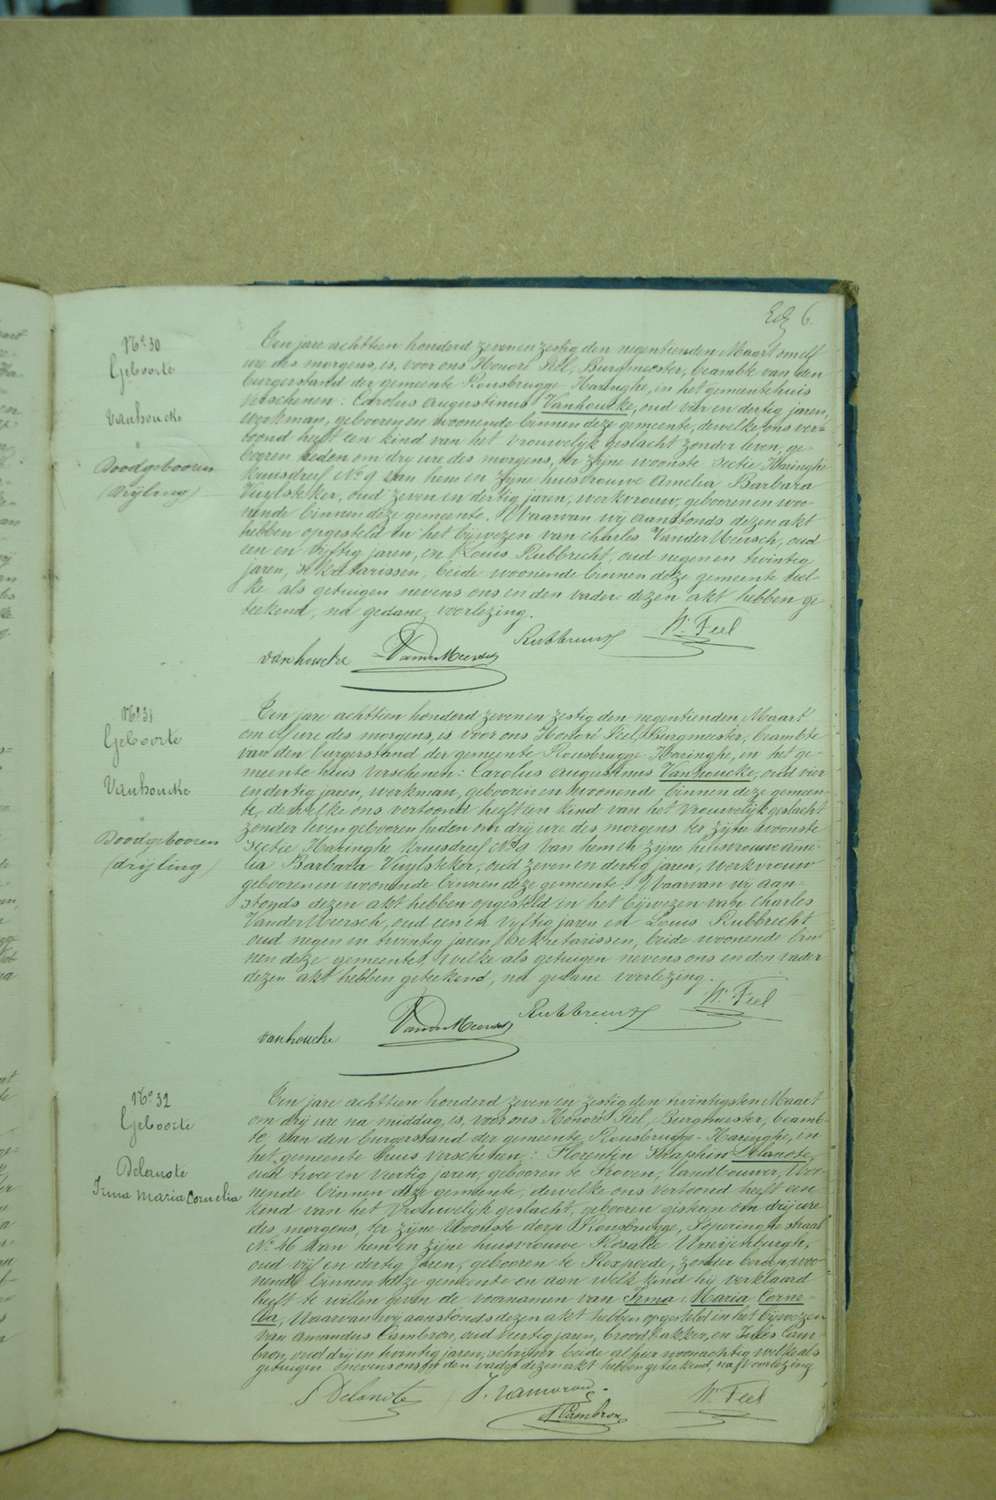 6.
N° 30
Geboorte
Vanhoucke
Doodgebooren
(drijling)
Ten jare achttien honderd zeven en zestig den negentienden Maart om elf
ure des morgens, is, voor ons Honoré Feel, Burgmeester, beambte van den
burgerstand der gemeente Rousbrugge-Haringhe, in het gemeentehuis
verschenen: Carolus Augustinus Vanhoucke, oud vier en dertig jaren,
werkman, gebooren en woonende binnen deze gemeente, dewelke ons ver-
toond heeft een kind van het vrouwelyk geslacht zonder leven, ge-
booren heden om dry ure des morgens, ter zyne woonste sectie Haringhe
kruisdreef N° 9 van hem en zyne huisvrouwe Amelia Barbara
Vuylsteker, oud zeven en dertig jaren, werkvrouw, gebooren en woo-
nende binnen deze gemeente. Waarvan wy aanstonds dezen akt
hebben opgesteld in het bywezen van Charles VanderMeersch, oud
een en vyftig jaren, en Louis Rubbrecht, oud negen en twintig
jaren, sekretarissen, beide woonende binnen deze gemeente wel-
ke als getuigen nevens ons en den vader dezen akt hebben ge-
teekend, na gedane voorlezing.
vanhoucke VanderMeersch H. Feel
N° 31
Geboorte
Vanhoucke
Doodgebooren
(drijling)
Ten jare achttien honderd zeven en zestig den negentienden Maart
om elf ure des morgens, is voor ons Honoré Feel, Burgmeester, beambte
van den burgerstand der gemeente Rousbrugge-Haringhe, in het ge-
meente huis verschenen: Carolus Augustinus Vanhoucke, oud vier
en dertig jaren, werkman, gebooren en woonende binnen deze gemeen-
te, dewelke ons vertoond heeft een kind van het vrouwelyk geslacht
zonder leven gebooren heden om dry ure des morgens ter zyne woonste
sectie Haringhe kruisdreef N° 9 van hem en zyne huisvrouwe Ame-
lia Barbara Vuylsteker, oud zeven en dertig jaren, werkvrouw
gebooren en woonende binnen deze gemeente. Waarvan wy aan-
stonds dezen akt hebben opgesteld in het bywezen van Charles
VanderMeersch, oud een en vyftig jaren en Louis Rubbrecht
oud negen en twintig jaren, sekretarissen, beide woonende bin-
nen deze gemeente, welke als getuigen nevens ons en den vader
dezen akt hebben geteekend, na gedane voorlezing.
vanhoucke VanderMeersch H. Feel
N° 32
Geboorte
Delanote
Irma Maria Cornelia
Ten jare achttien honderd zeven en zestig den twintigsten Maart
om dry ure na middag, is, voor ons Honoré Feel, Burgmeester, beamb-
te van den burgerstand der gemeente Rousbrugge-Haringhe, in
het gemeente huis verschenen: Florentin Seraphin Delanote,
oud twee en veertig jaren, gebooren te Proven, landbouwer, woo-
nende binnen deze gemeente, dewelke ons vertoond heeft een
kind van het vrouwelyk geslacht, gebooren gisteren om dry ure
des morgens, ter zyne woonste dorp Rousbrugge, Poperinghe straat
N° 46 van hem en zyne huisvrouwe Rosalie
oud vyf en dertig jaren, gebooren te Rexpoede, zonder beroep, woo-
nende binnen deze gemeente en aan welk kind hy verklaard
heeft te willen geven de voornamen van Irma Maria Corne-
lia, Waarvan wy aanstonds dezen akt hebben opgesteld in het bywezen
van Amandus Cambron, oud veertig jaren, brood bakker, en Jules Cam-
bron, oud dry en twintig jaren, schryver beide alhier woonachtig welke als
getuigen nevens ons en den vader dezen akt hebben geteekend, na voorlezing
Delanote A Cambron H. Feel